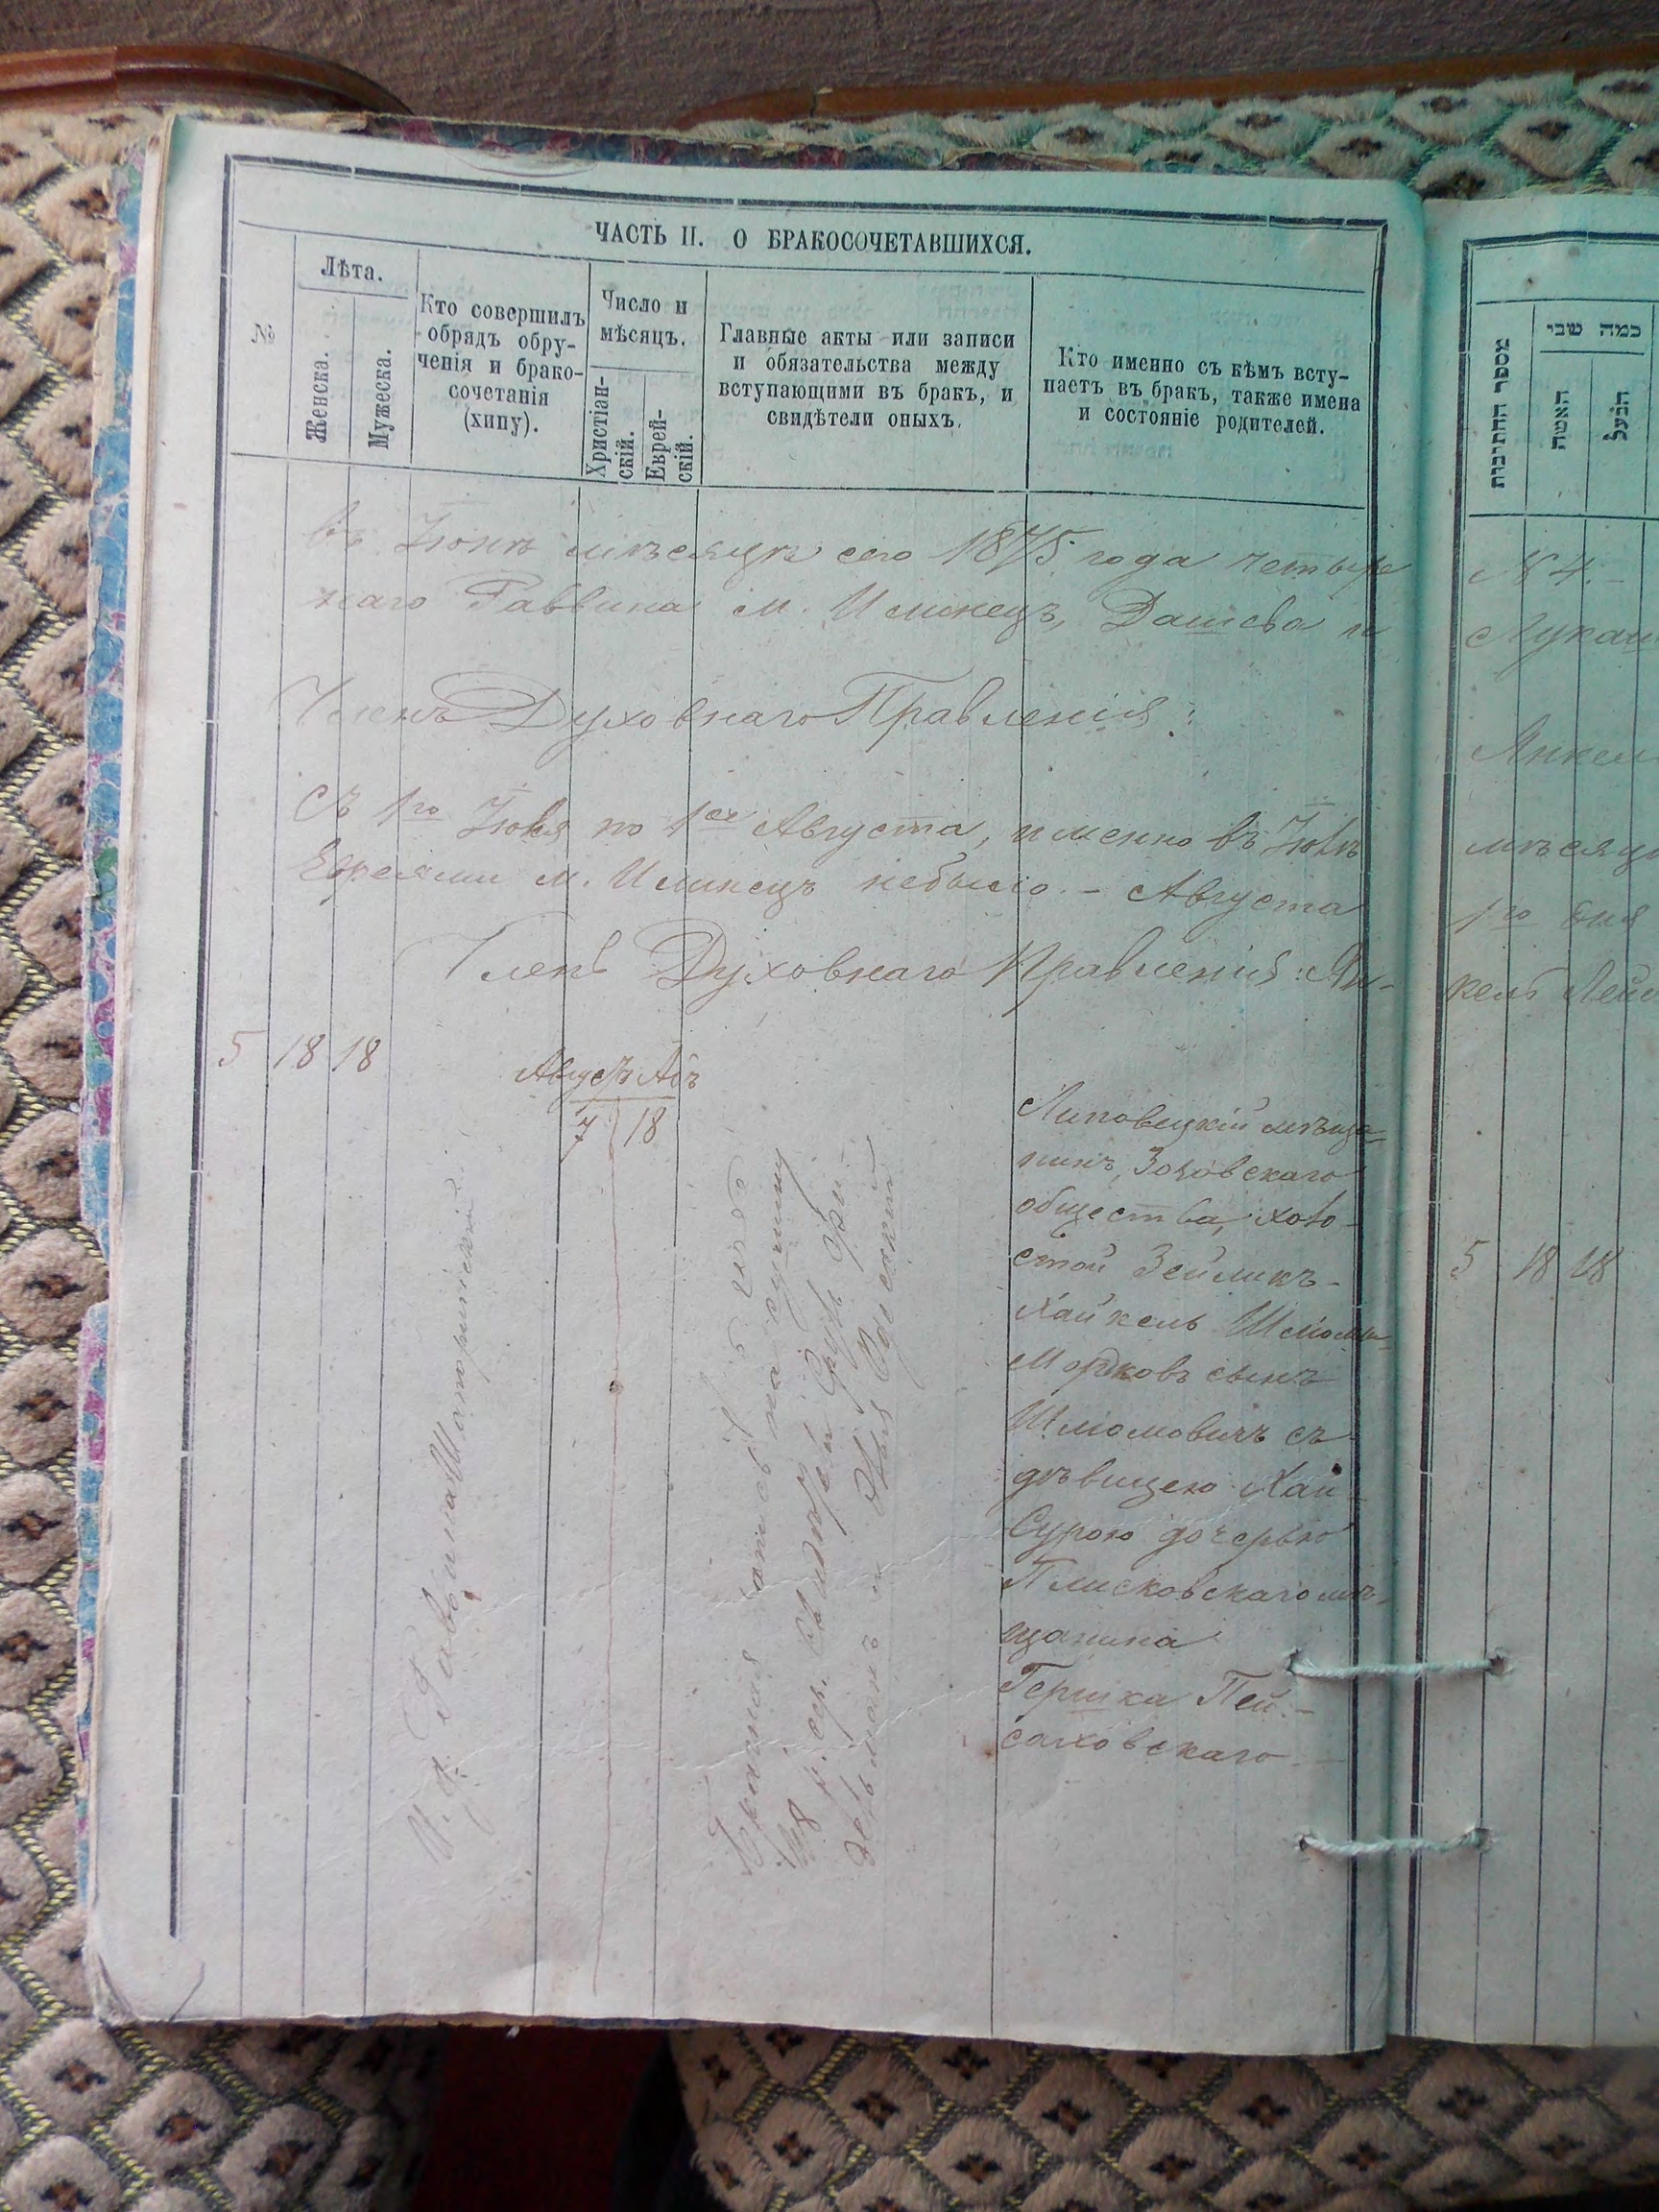 ЧАСТЬ II. О БРАКОСОЧЕТАВШИХСЯ.
№
Лѣта.
Женска.
Мужеска.
Кто совершилъ
обрядъ обру-
ченія и брако-
сочетанія
(хипу).
Число и
мѣсяцъ.
Христіан-
скій.
Еврей-
скій.
Главные акты или записи
и обязательства между
вступающими въ бракъ, и
свидѣтели оныхъ.
Кто именно съ кѣмъ всту-
паетъ въ бракъ, также имена
и состояніе родителей.
въ Іюнѣ мѣсяцѣ сего 1875 года четыре
наго Раввина м. Илинецъ, Дашева и
Членъ Духовнаго Правленія:
Съ 1го Іюля по 1ое Августа, именно въ Іюлѣ
Евреями м. Илинецъ небыло. - Августа
Членъ Духовнаго Правленія: Ян-
5 18 18
Августъ Абъ
7 18
И. д. Раввина
Брачная запись на сумму
48 р. сер.
Липовецкій мѣща-
нинъ, Зозовскаго
общества, холо-
стой Зейликъ-
Хайкель Шліома-
Морковъ сынъ
Шліомовичъ съ
дѣвицею Хаи-
Сурою дочерью
Плисковскаго мѣ-
щанина
Гершка Пей-
саховскаго
מספר החתונות
כמה שני
האשה
הבעל
№ 4.-
Лукаш
Янкел
мѣсяц
1го дня
кель Лей
5 18 18